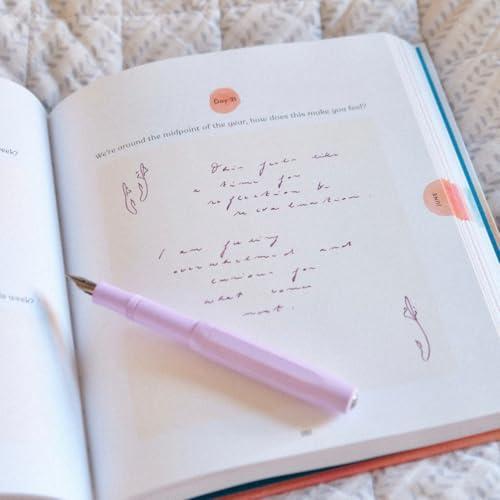 week?
is week?
Day 91
We're around the midpoint of the year, how does this make you feel?
This feels like
a time for
reflection &
revaluation
I am feeling
overwhelmed and
curious for
what comes
next.
JUNE